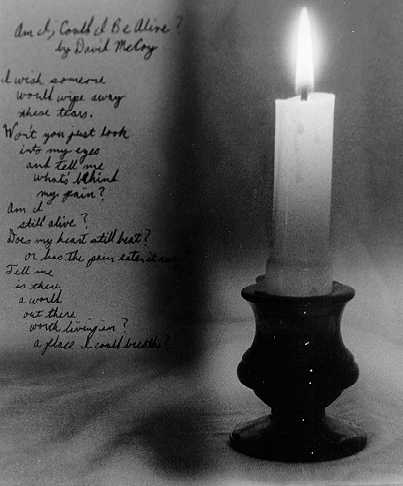 Am I, Could I Be Alive?
by David McCoy
I wish someone
would wipe away
these tears.
Won't you just look
into my eyes
and tell me
what's behind
my pain?
Am I
still alive?
Does my heart still beat?
or has the pain eaten it
Tell me
is there
a world
out there
worth living in?
a place I could breathe?